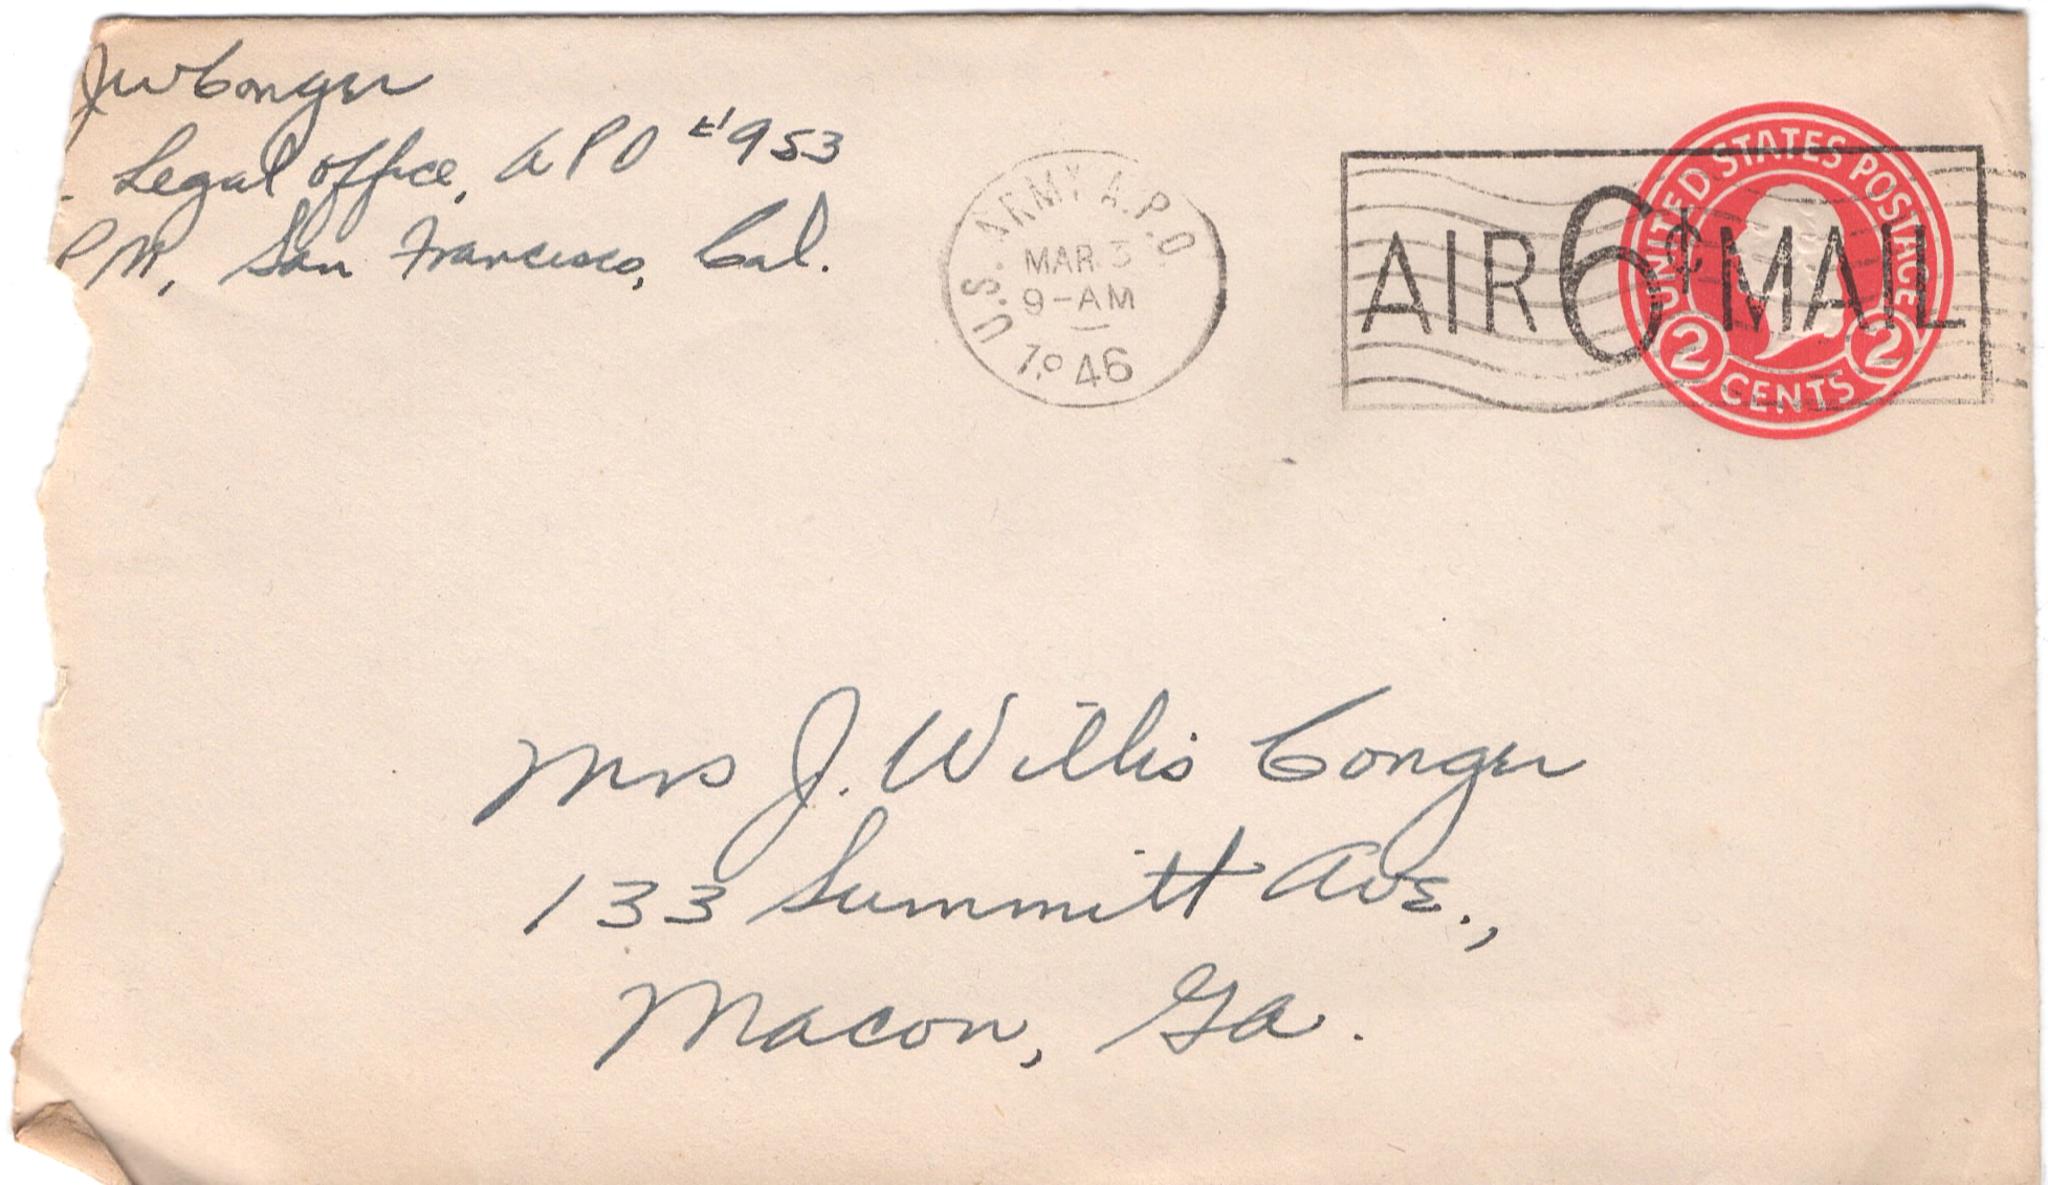 JW Conger
Legal Office, APO #953
PM, San Francisco, Cal.
U.S. ARMY A.P.O
MAR 3
9-AM
46
AIR 6¢ MAIL
UNITED STATES POSTAGE
2 CENTS 2
Mrs J. Willis Conger
133 Summitt Ave.,
Macon, Ga.